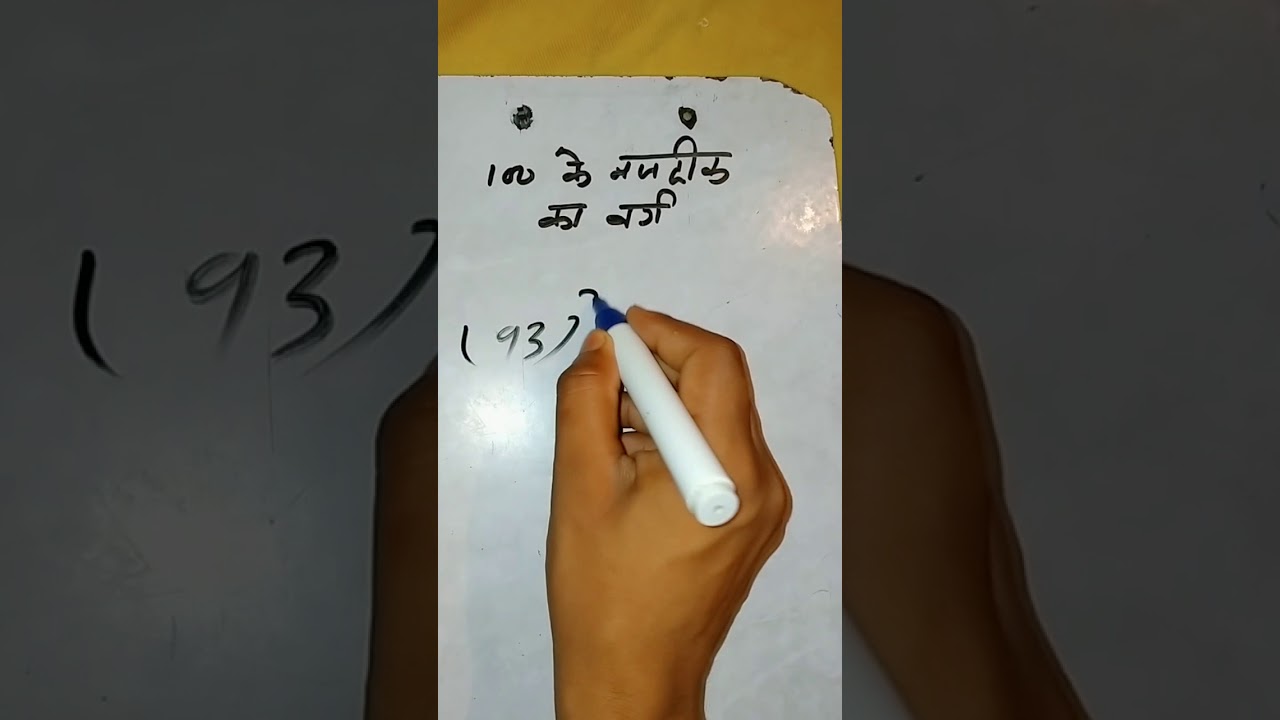 100 के नजदीक
का वर्ग
(93)²